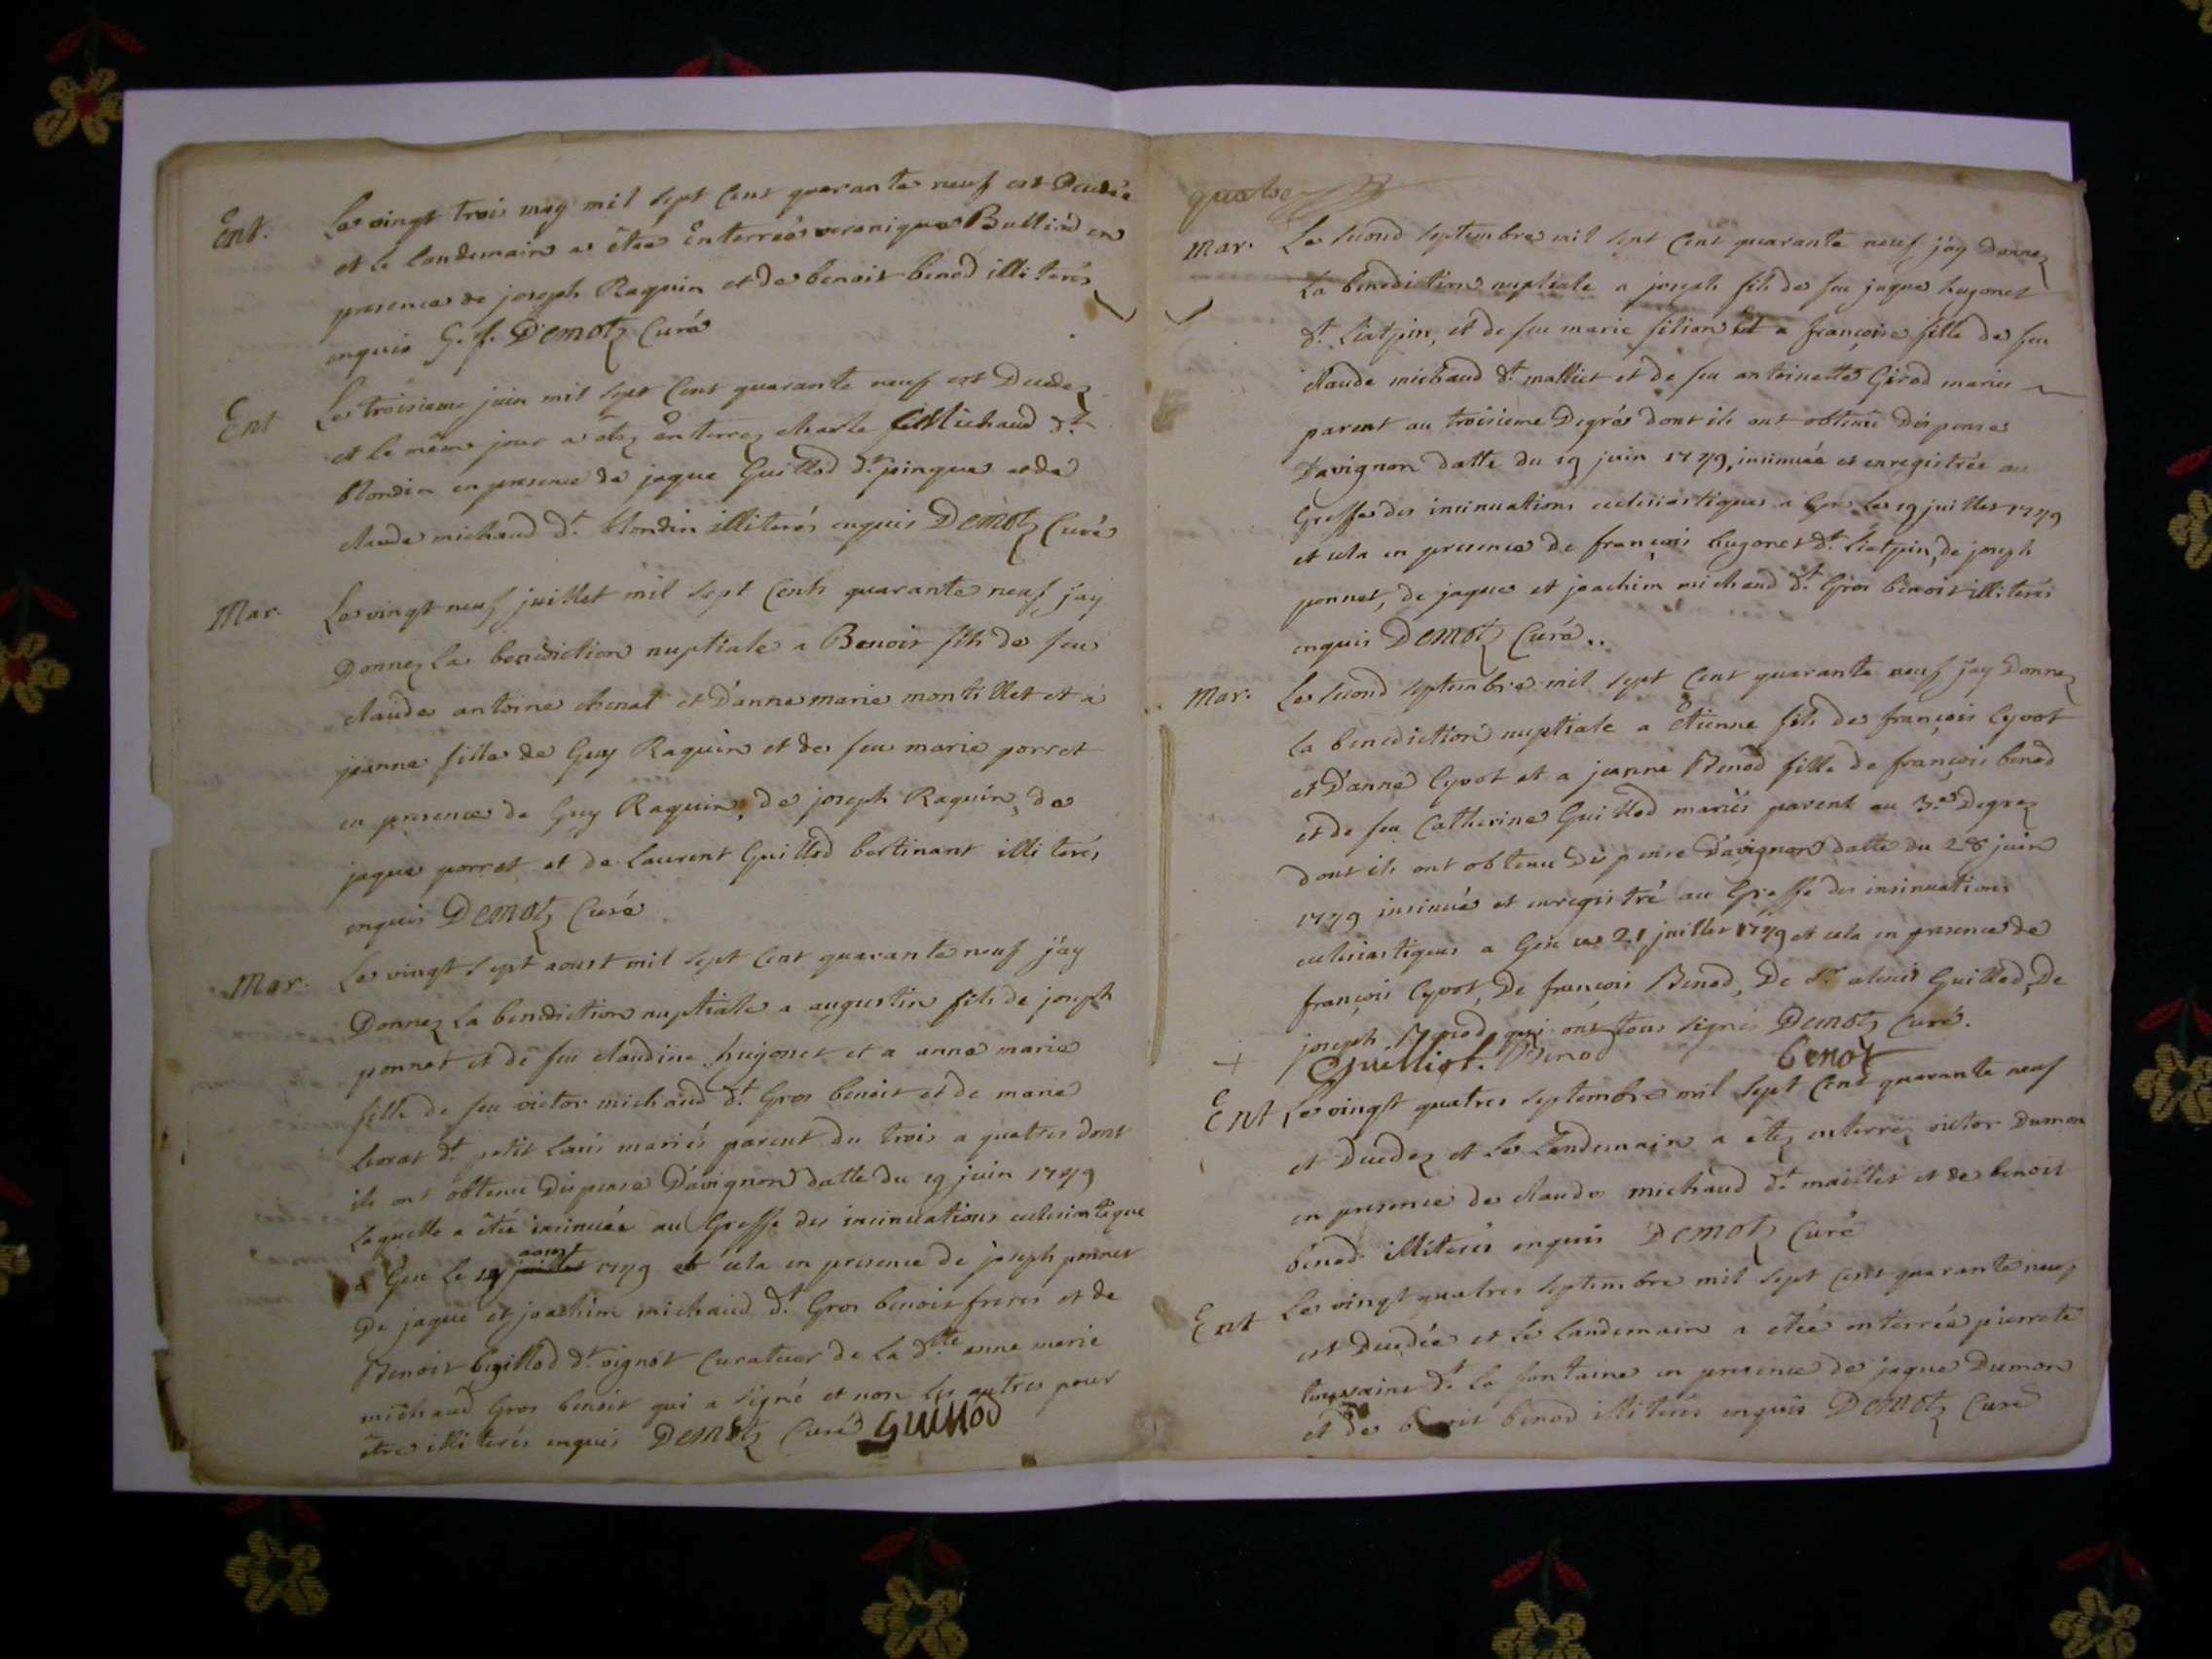 Ent. Le vingt trois may mil sept Cent quarante neuf est Decedée
et le landemain a êtée Enterreé veronique Bulliod en
presence de joseph Raquin et de benoit benod illiterés
enquis G. f. Demotz Curé
Ent Le troisieme juin mil sept Cent quarante neuf est Decedez
et le même jour a êtez Enterrez charle Michaud dt.
blondin en presence de jaque Guillod dt. pingue et de
claude michaud dt. blondin illiterés enquis Demotz Curé
Mar. Le vingt neuf juillet mil sept Cents quarante neuf jay
Donnez la benediction nuptiale a Benoit fils de feu
claude antoine chenal et D'anne marie montillet et a
jeanne fille de Guy Raquin et de feu marie porret
en presence de Guy Raquin, de joseph Raquin, de
jaque porret et de laurent Guillod bertinant illiterés
enquis Demotz Curé
Mar. Le vingt sept aoust mil sept Cent quarante neuf j'ay
Donnez la benediction nuptiale a augustin fils de joseph
ponnet et de feu claudine hugonet et a anne marie
fille de feu victor michaud dt. Gros benoit et de marie
dt. petit louis mariés parent du trois a quatres dont
ils ont obtenu Dispense D'avignon datte du 19 juin 1749
laquelle a êtée insinuée au Greffe des insinuations eclesiastique
a Gex le 19 juillet aoust 1749 et cela en presence de joseph ponnet
De jaque et joachim michaud dt. Gros benoit freres et de
Benoit Guillod dt. vignot Curateur de la dtte anne marie
michaud Gros benoit qui a signé et non les autres pour
être illiterés enquis Demotz Curé Guillod
quatre
Mar. Le second septembre mil sept Cent quarante neuf j'ay Donnez
La benediction nuptiale a joseph fils de feu jaque hugonet
dt. liatpin, et de feu marie filion et a françoise fille de feu
claude michaud dt. malliet et de feu antoinette Girod mariés
parent au troisieme Degrés dont ils ont obtenu Dispense
D'avignon datte du 19 juin 1749, insinuée et enregistrée au
Greffe des insinuations eclesiastiques a Gex le 19 juillet 1749
et cela en presence de françois hugonet dt. liatpin, de joseph
ponnet, de jaque et joachim michaud dt. Gros benoit illiterés
enquis Demotz Curé..
Mar. Le second septembre mil sept Cent quarante neuf jay Donnez
la benediction nuptiale a Etienne fils de françois Cyvot
et D'anne Cyvot et a jeanne Benod fille de françois benod
et de feu Catherine Guillod mariés parent au 3.e Degrez
dont ils ont obtenu Dispense D'avignon datte du 28 juin
1749 insinué et enregistré au Greffe des insinuations
eclesiastiques a Gex le 21 juillet 1749 et cela en presence de
françois Cyvot, De françois Benod, De Sr. alexis Guillod, De
joseph Benod, qui ont tous signés Demotz Curé.
+ Guilliot. Benod benot
Ent Le vingt quatres septembre mil sept Cent quarante neuf
et Decedez et le Lendemain a êtez enterréz victor Dumon
en presence de claude michaud dt. mailliet et de benoit
benod illiterés enquis Demotz Curé
Ent Le vingt quatres septembre mil sept Cent quarante neuf
est Decedée et le landemain a etée enterrée pierrete
dt. la fontaine en presence de jaque Dumon
et de benoit benod illiterés enquis Demotz Curé